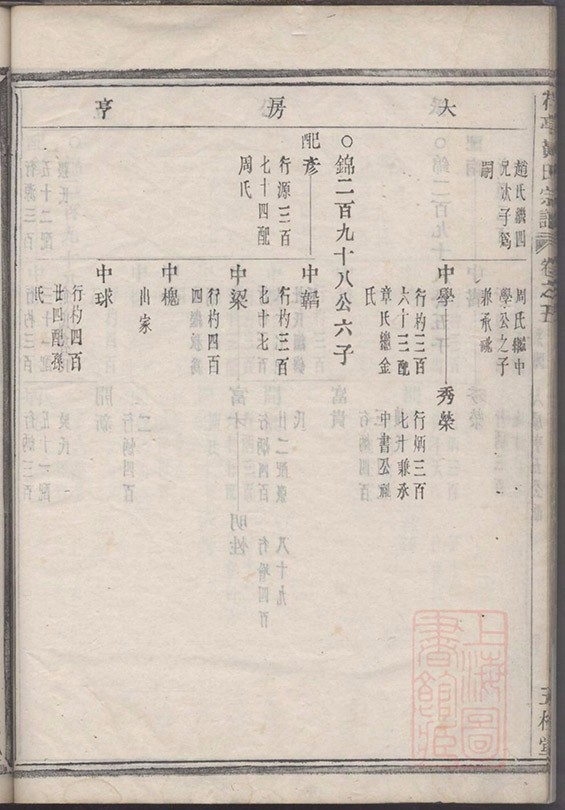 大房亨
趙氏繼四
兄狀子爲
嗣
周氏繼中
學公之子
兼承祧
中學
行杓三百
六十三配
章氏繼金
氏
秀榮
行炳三百
七十兼承
中書公祧
○錦二百九十八公六子
配彥
行源三百
七十四配
周氏
中韜
行杓三百
七十七
中梁
行杓四百
四
中槐
出家
中球
行杓四百
廿四配孫
氏
黃氏宗譜
卷之五
上海圖書館藏